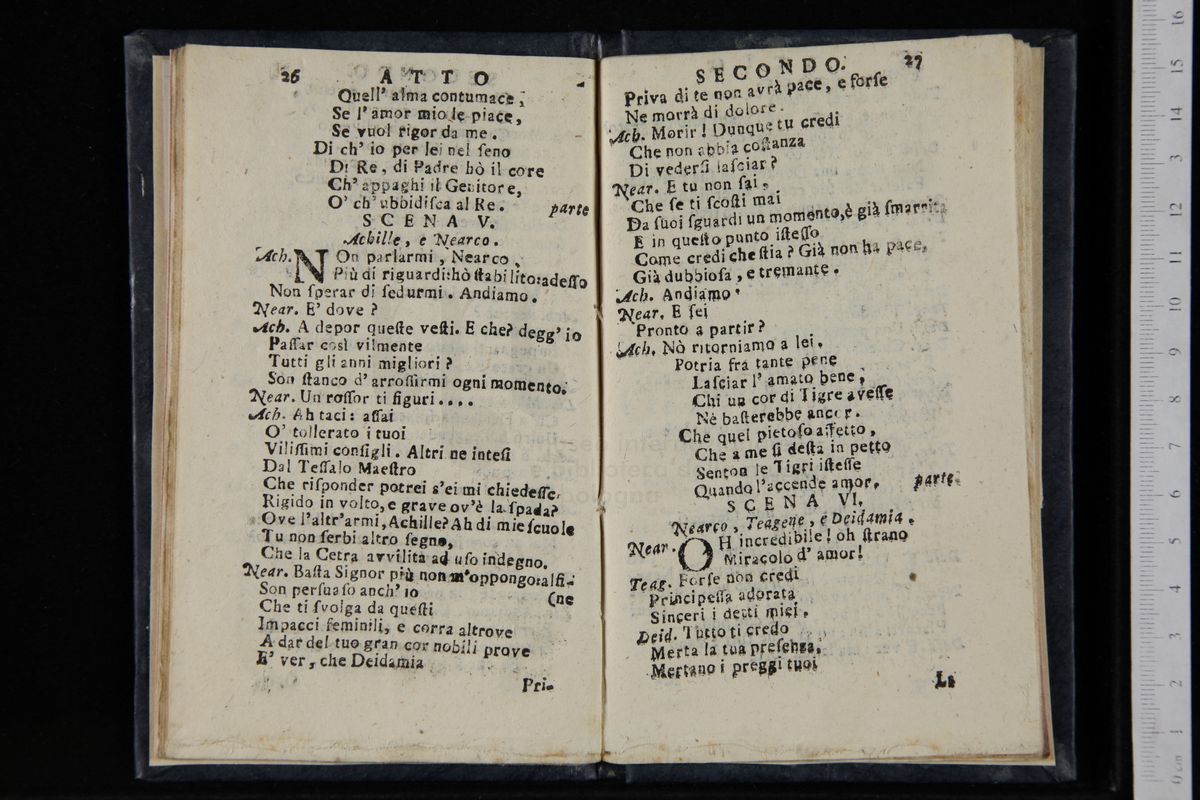 26 ATTO
Quell' alma contumace,
Se l'amor mio le piace,
Se vuol rigor da me.
Di ch' io per lei nel seno
Di Re, di Padre hò il core
Ch' appaghi il Genitore,
O' ch' ubbidisca al Re. parte
SCENA V.
Achille, e Nearco.
Ach. NOn parlarmi, Nearco,
Più di riguardi: hò stabilito: adesso
Non sperar di sedurmi. Andiamo.
Near. E' dove?
Ach. A depor queste vesti. E che? degg' io
Passar così vilmente
Tutti gli anni migliori?
Son stanco d' arrossirmi ogni momento.
Near. Un rossor ti figuri....
Ach. Ah taci: assai
O' tollerato i tuoi
Vilissimi consigli. Altri ne intesi
Dal Tessalo Maestro
Che risponder potrei s'ei mi chiedesse,
Rigido in volto, e grave ov'è la spada?
Ove l'altr'armi, Achille? Ah di mie scuole
Tu non serbi altro segno,
Che la Cetra avvilita ad uso indegno.
Near. Basta Signor più non m'oppongo: alfi-
Son persuaso anch' io (ne
Che ti svolga da questi
Impacci feminili, e corra altrove
A dar del tuo gran cor nobili prove
E' ver, che Deidamia
Pri-
SECONDO. 27
Priva di te non avrà pace, e forse
Ne morrà di dolore.
Ach. Morir! Dunque tu credi
Che non abbia costanza
Di vedersi lasciar?
Near. E tu non sai,
Che se ti scosti mai
Da suoi sguardi un momento, è già smarrita
E in questo punto istesso
Come credi che stia? Già non ha pace,
Già dubbiosa, e tremante.
Ach. Andiamo.
Near. E sei
Pronto a partir?
Ach. Nò ritorniamo a lei.
Potria fra tante pene
Lasciar l' amato bene,
Chi un cor di Tigre avesse
Nè basterebbe ancor.
Che quel pietoso affetto,
Che a me si desta in petto
Senton le Tigri istesse
Quando l'accende amor. parte.
SCENA VI.
Nearco, Teagene, e Deidamia.
Near. OH incredibile! oh strano
Miracolo d' amor!
Teag. Forse non credi
Principessa adorata
Sinceri i detti miei.
Deid. Tutto ti credo
Merta la tua presenza,
Mertano i preggi tuoi
La